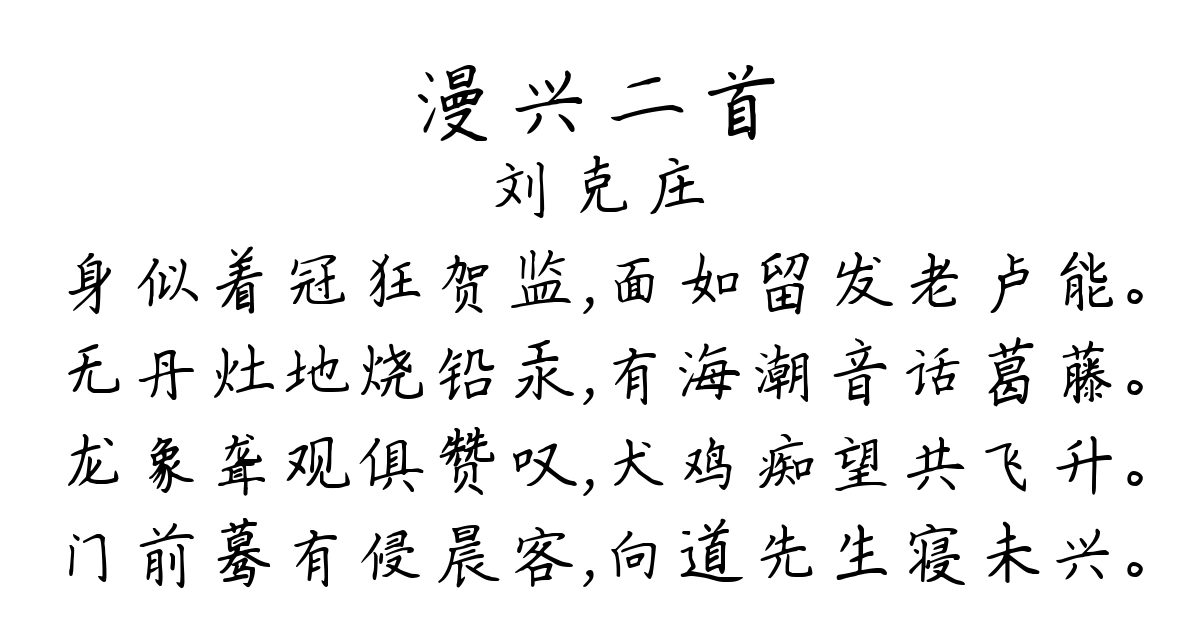 漫兴二首
刘克庄
身似着冠狂贺监,面如留发老卢能。
无丹灶地烧铅汞,有海潮音话葛藤。
龙象聋观俱赞叹,犬鸡痴望共飞升。
门前蓦有侵晨客,向道先生寝未兴。